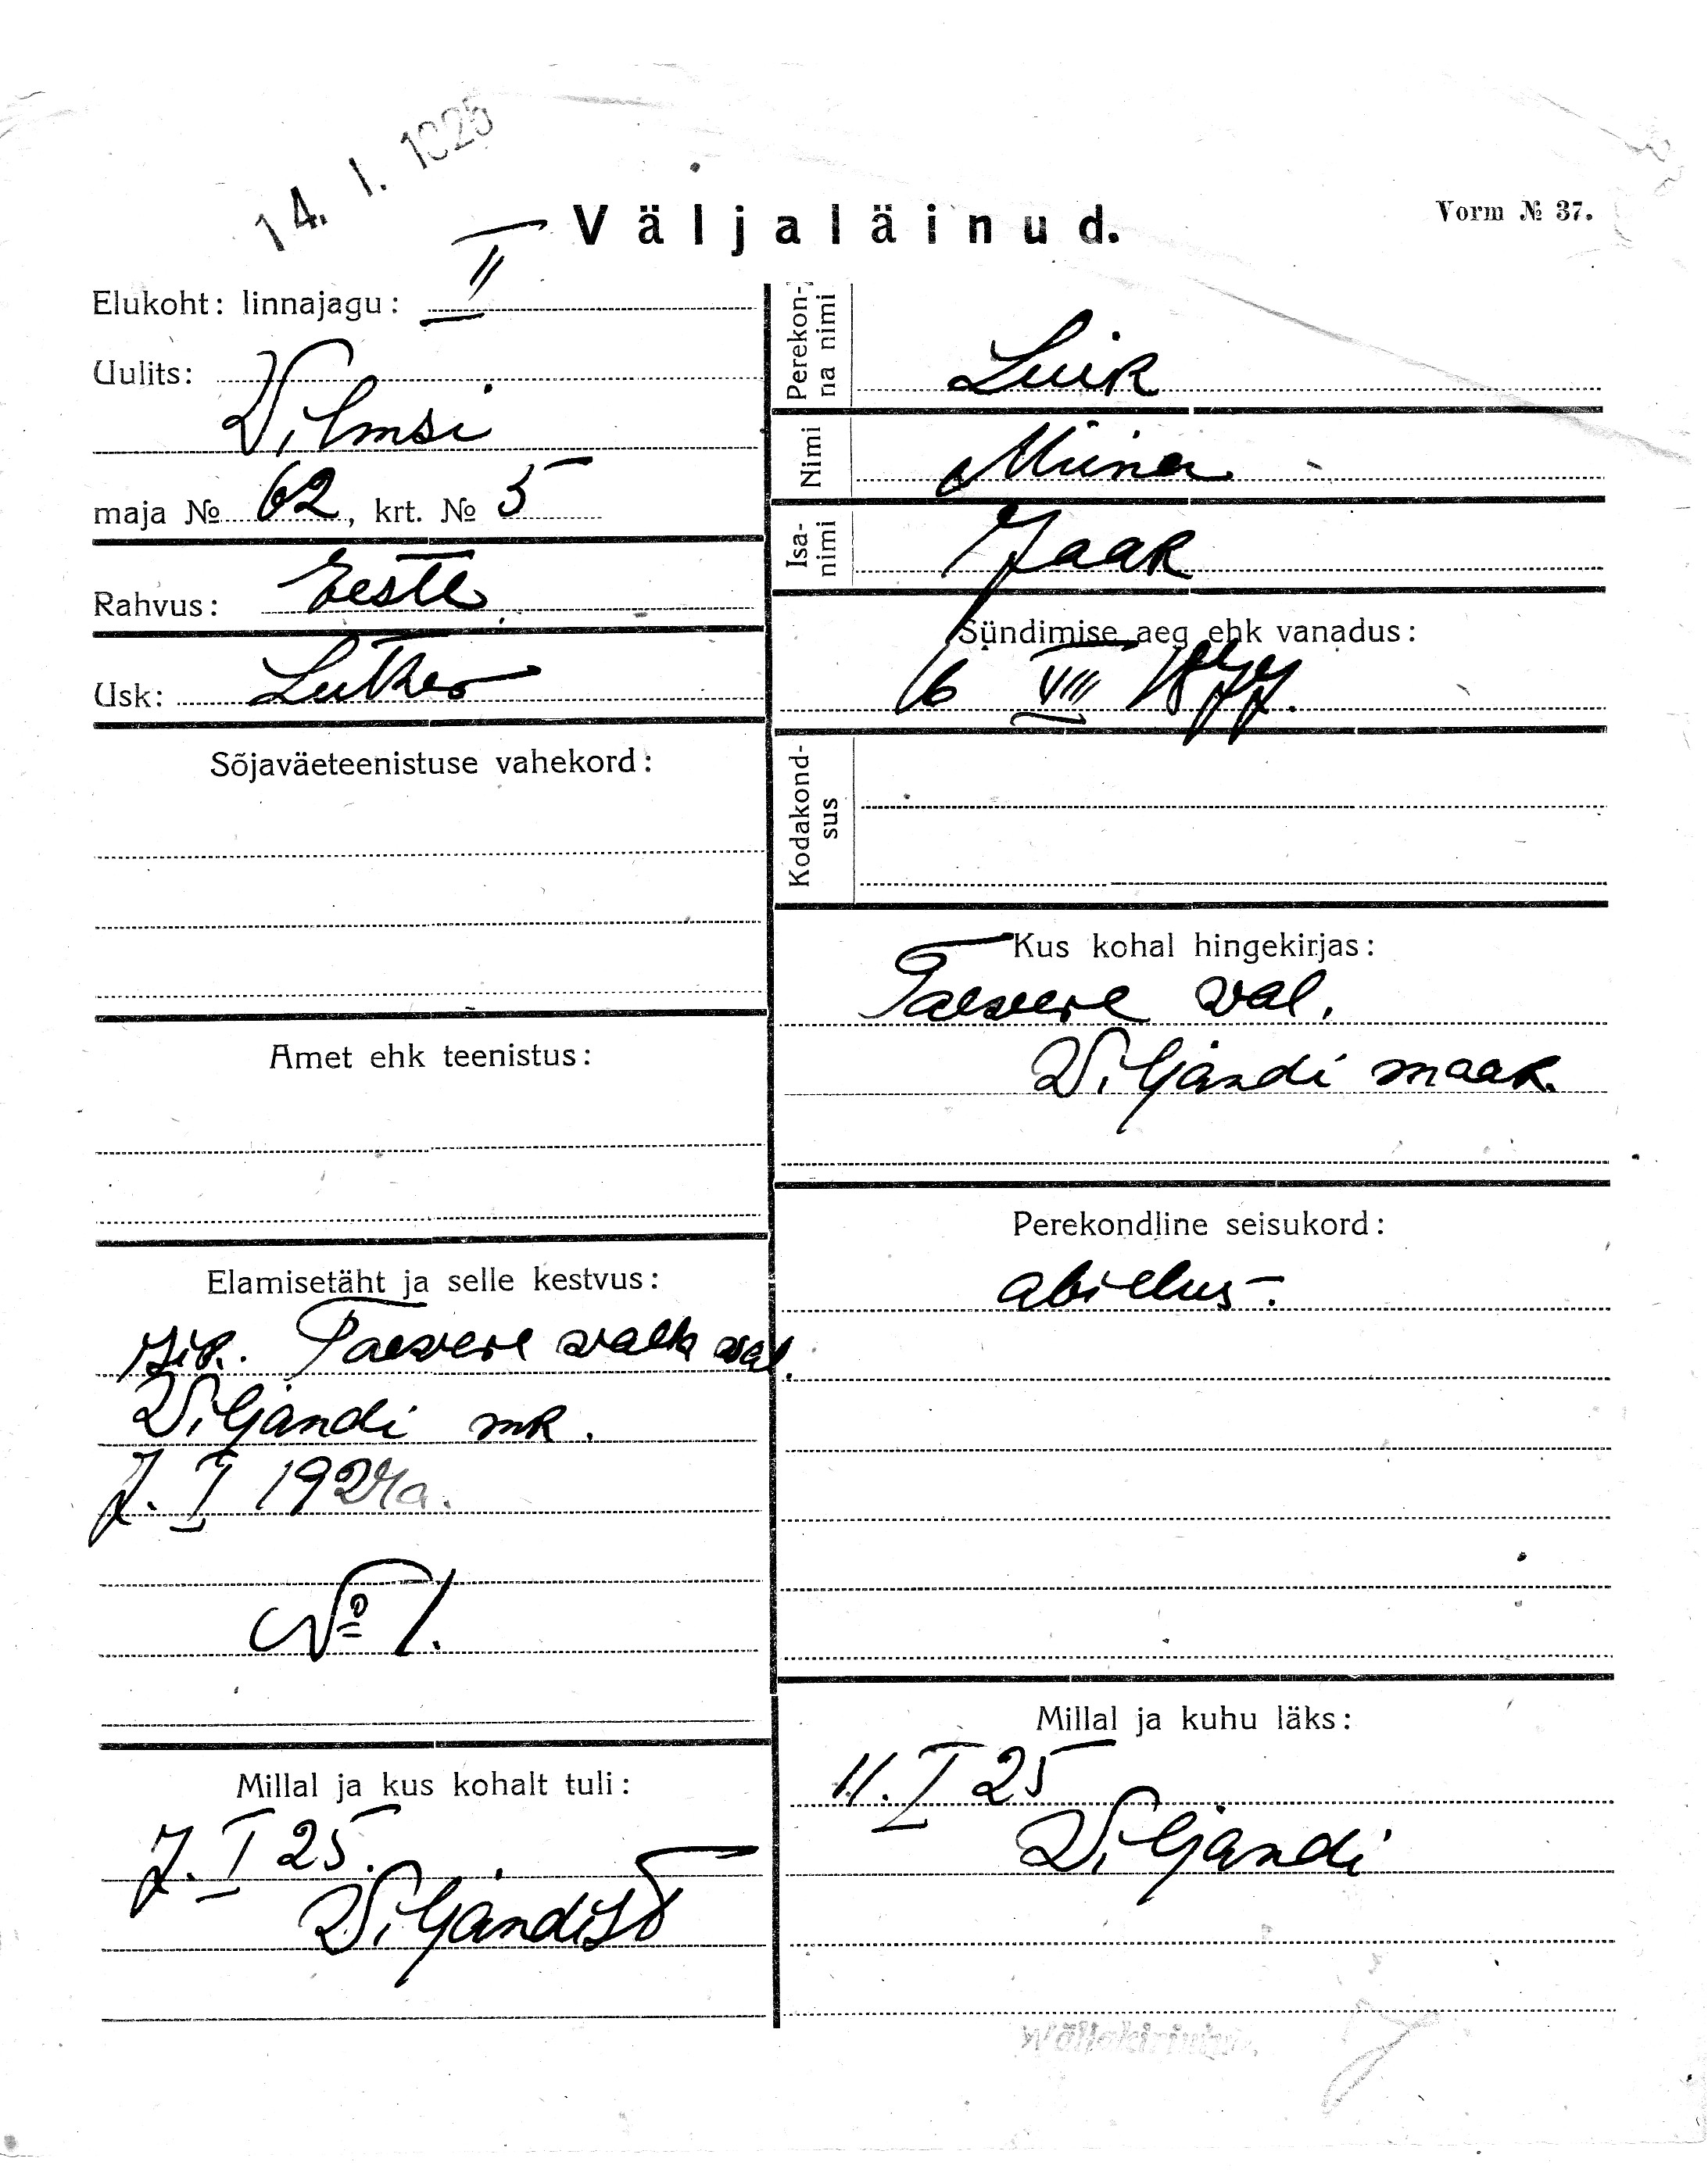 14. I. 1925
Väljaläinud.
Vorm № 37.
Elukoht: linnajagu: II
Uulits:
Vilmsi
maja № 62, krt. № 5
Rahvus: Eestl.
Usk: Luther
Sõjaväeteenistuse vahekord:
Amet ehk teenistus:
Elamisetäht ja selle kestvus:
Taevere valla val.
Viljandi mk.
7. I 1924 a.
№ 1.
Millal ja kus kohalt tuli:
7. I 25.
Viljandist
Perekonna nimi
Luik
Nimi
Miina
Isanimi
Jaak
Sündimise aeg ehk vanadus:
6 VIII 1877.
Kodakondsus
Kus kohal hingekirjas:
Taevere val.
Viljandi maak.
Perekondline seisukord:
abielus.
Millal ja kuhu läks:
11. I 25
Viljandi